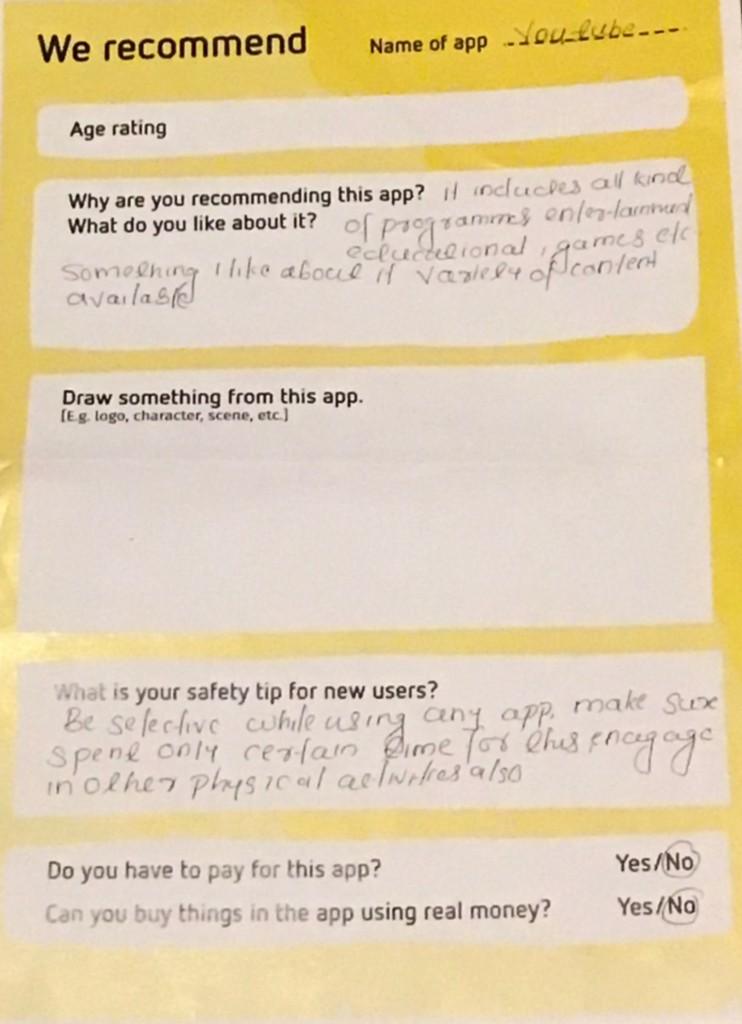 We recommend
Name of app You-tube
Age rating
Why are you recommending this app? it includes all kind
What do you like about it? of programmes entertainment
educational, games etc
Something I like about it variety of content
available
Draw something from this app.
[E.g. logo, character, scene, etc.]
What is your safety tip for new users?
Be selective while using any app. make sure
spend only certain time for this engage
in other physical activities also
Do you have to pay for this app? Yes/No
Can you buy things in the app using real money? Yes/No